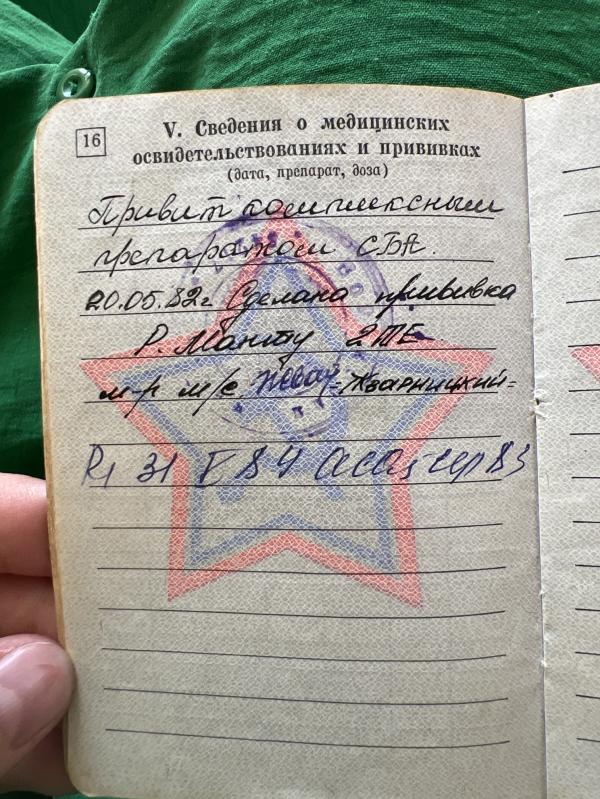 16
V. Сведения о медицинских
освидетельствованиях и прививках
(дата, препарат, доза)
Привит комплексным
препаратом СБА.
20.05.82г. Сделана прививка
Р. Манту 2ТЕ
м-р м/с. =Жварницкий=
31 84 сер 83